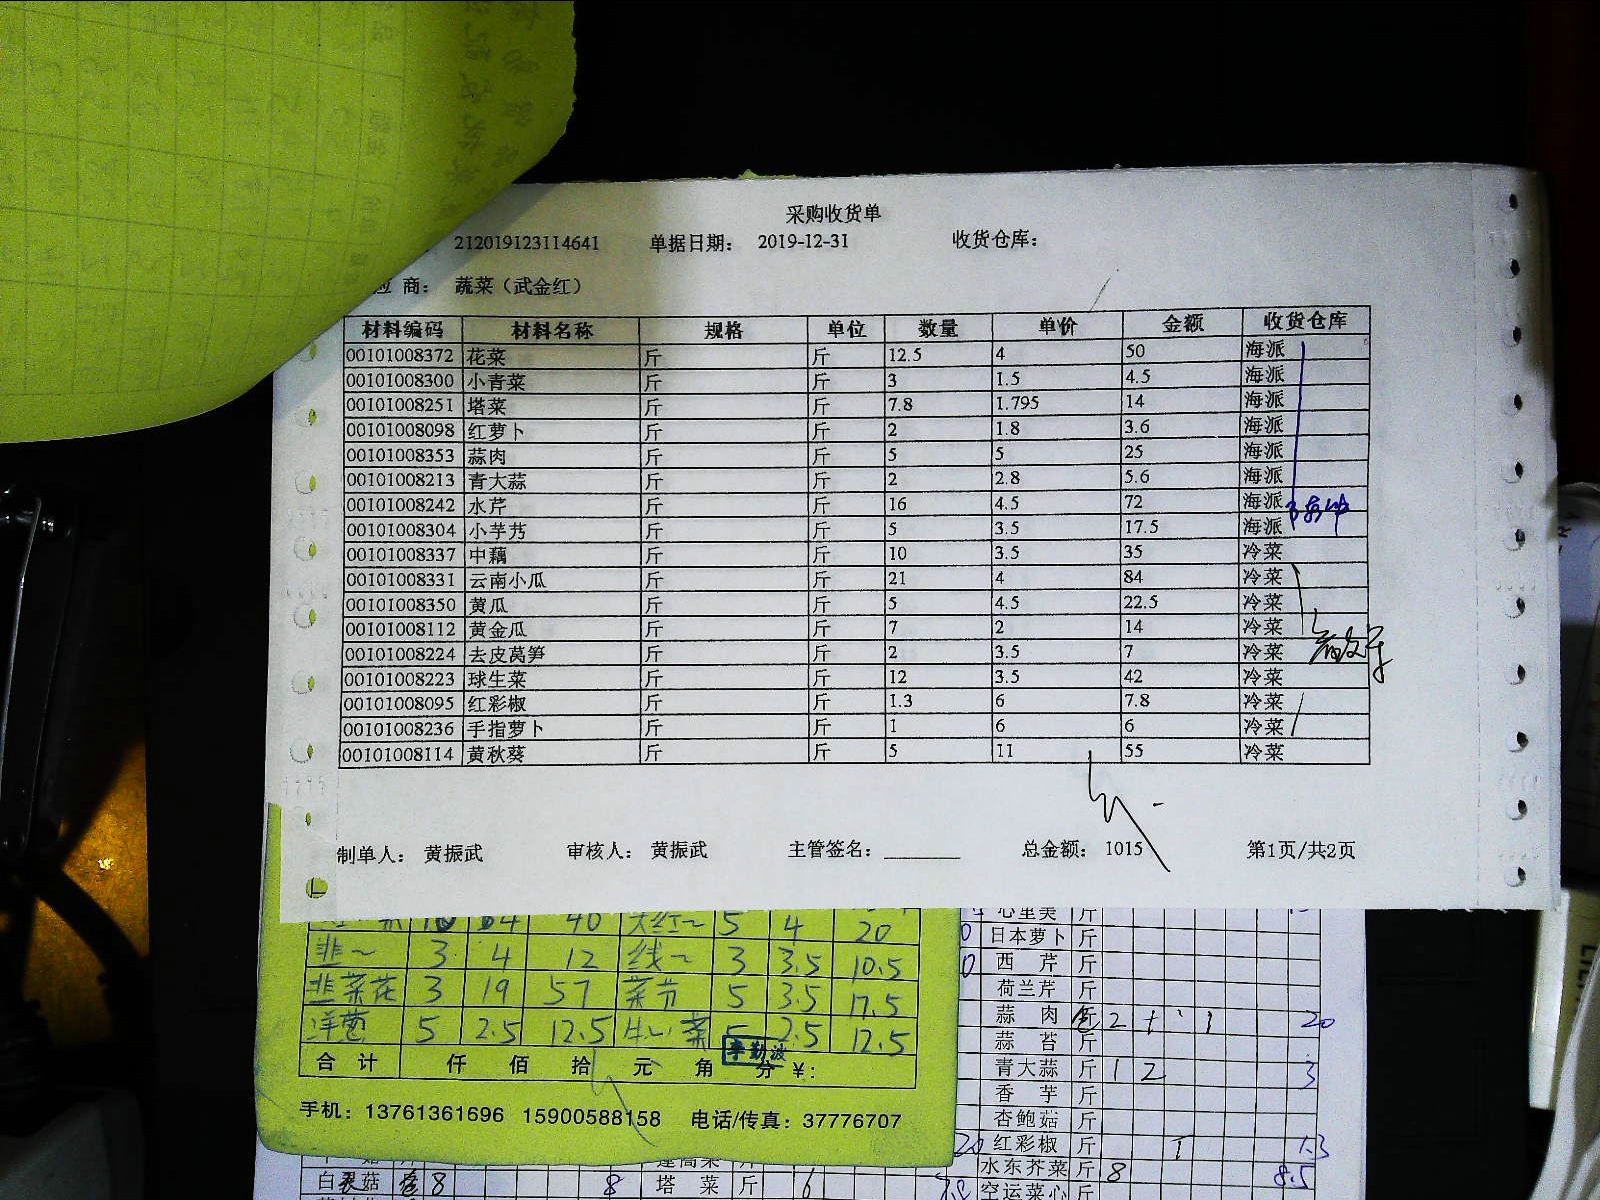 采购收货单
212019123114641 单据日期： 2019-12-31 收货仓库：
应 商： 蔬菜（武金红）
材料编码 材料名称 规格 单位 数量 单价 金额 收货仓库
00101008372 花菜 斤 斤 12.5 4 50 海派
00101008300 小青菜 斤 斤 3 1.5 4.5 海派
00101008251 塔菜 斤 斤 7.8 1.795 14 海派
00101008098 红萝卜 斤 斤 2 1.8 3.6 海派
00101008353 蒜肉 斤 斤 5 5 25 海派
00101008213 青大蒜 斤 斤 2 2.8 5.6 海派
00101008242 水芹 斤 斤 16 4.5 72 海派
00101008304 小芋艿 斤 斤 5 3.5 17.5 海派
00101008337 中藕 斤 斤 10 3.5 35 冷菜
00101008331 云南小瓜 斤 斤 21 4 84 冷菜
00101008350 黄瓜 斤 斤 5 4.5 22.5 冷菜
00101008112 黄金瓜 斤 斤 7 2 14 冷菜
00101008224 去皮莴笋 斤 斤 2 3.5 7 冷菜
00101008223 球生菜 斤 斤 12 3.5 42 冷菜
00101008095 红彩椒 斤 斤 1.3 6 7.8 冷菜
00101008236 手指萝卜 斤 斤 1 6 6 冷菜
00101008114 黄秋葵 斤 斤 5 11 55 冷菜
制单人： 黄振武 审核人： 黄振武 主管签名： 总金额： 1015 第1页/共2页
40 5 4 20
韭~ 3 4 12 线~ 3 3.5 10.5
韭菜花 3 19 57 5 3.5 17.5
洋葱 5 2.5 12.5 5 2.5 12.5
合 计 仟 佰 拾 元 角 分 ¥:
手机：13761361696 15900588158 电话/传真：37776707
心里美 斤
日本萝卜 斤
西 芹 斤
荷兰芹 斤
蒜 肉 2 20
蒜 苔 斤
青大蒜 斤 1 2 3
香 芋 斤
杏鲍菇 斤
红彩椒 斤 1 1.3
水东芥菜 斤 8 8.5
空运菜心 斤
菇 8 8 塔 菜 斤 6